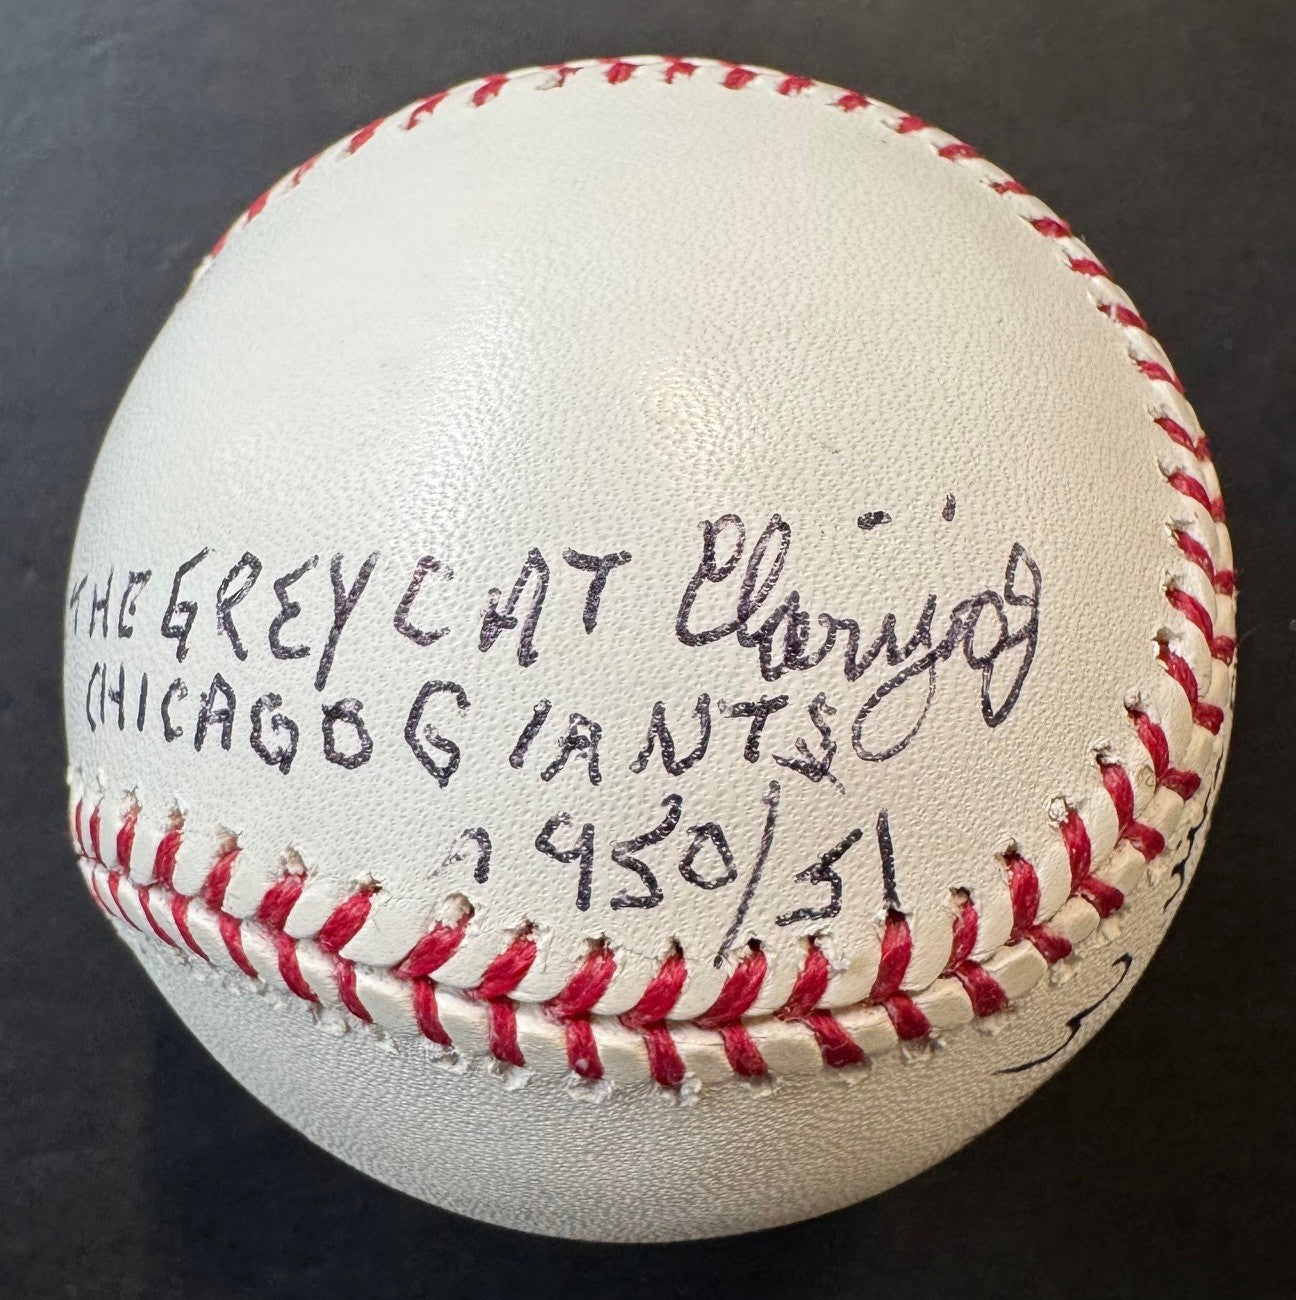 THE GREY CAT
CHICAGO GIANTS
1950/51